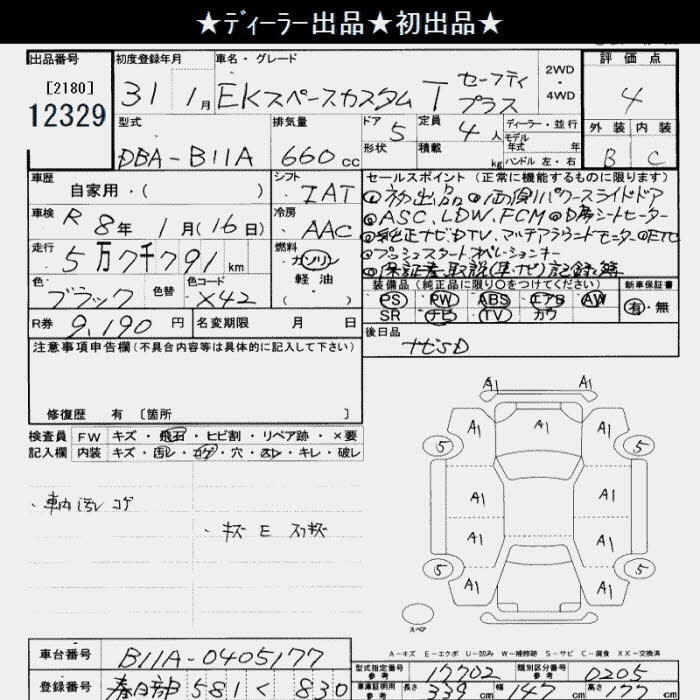 ★ディーラー出品★初出品★
出品番号
[2180]
12329
初度登録年月
31 1月
車名・グレード
EKスペースカスタム T セーフティプラス
2WD
・
4WD
評価点
4
外装 内装
B C
型式
DBA-B11A
排気量
660cc
ドア 5
形状
定員 4人
積載 kg
ディーラー・並行
モデル
年式 年
ハンドル 左・右
車歴
自家用・( )
シフト
IAT
車検 R 8年 1月(16日)
冷房
AAC
走行 5万7千791km
燃料
ガソリン
軽油
( )
色 ブラック
色替
色コード
X42
R券 9,190円
名変期限 月 日
セールスポイント(正常に機能するものに限ります)
①初出品②両側パワースライドドア
ASC、LDW、FCM シートヒーター
純正ナビDTV、マルチアラウンドモニター ETC
プッシュスタートオペレーションキー
保証書・取説(車・ナビ)記録簿
装備品(純正品に限り○をつけてください)
PS PW ABS エアB AW
SR ナビ TV カワ
新車保証書
有・無
後日品
ナビSD
注意事項申告欄(不具合内容等は具体的に記入して下さい)
修復歴 有 [箇所 ]
検査員 FW キズ・飛石・ヒビ割・リペア跡・×要
記入欄 内装 キズ・汚レ・コゲ・穴・スレ・キレ・破レ
・車内汚レ コゲ
・キズ E スリキズ
A1 A1
A1 A1 A1
5 5
A1 A1
A1 A1
5 5
A1 A1
スペア
A-キズ E-エクボ U-凹み W-補修跡 S-サビ C-腐食 XX-交換済
車台番号 B11A-0405177
登録番号 春日部 581 く 830
型式指定番号
参考
17702
類別区分番号
参考
0205
車庫証明用
参考
長さ 339cm 幅 147cm 高さ 177cm